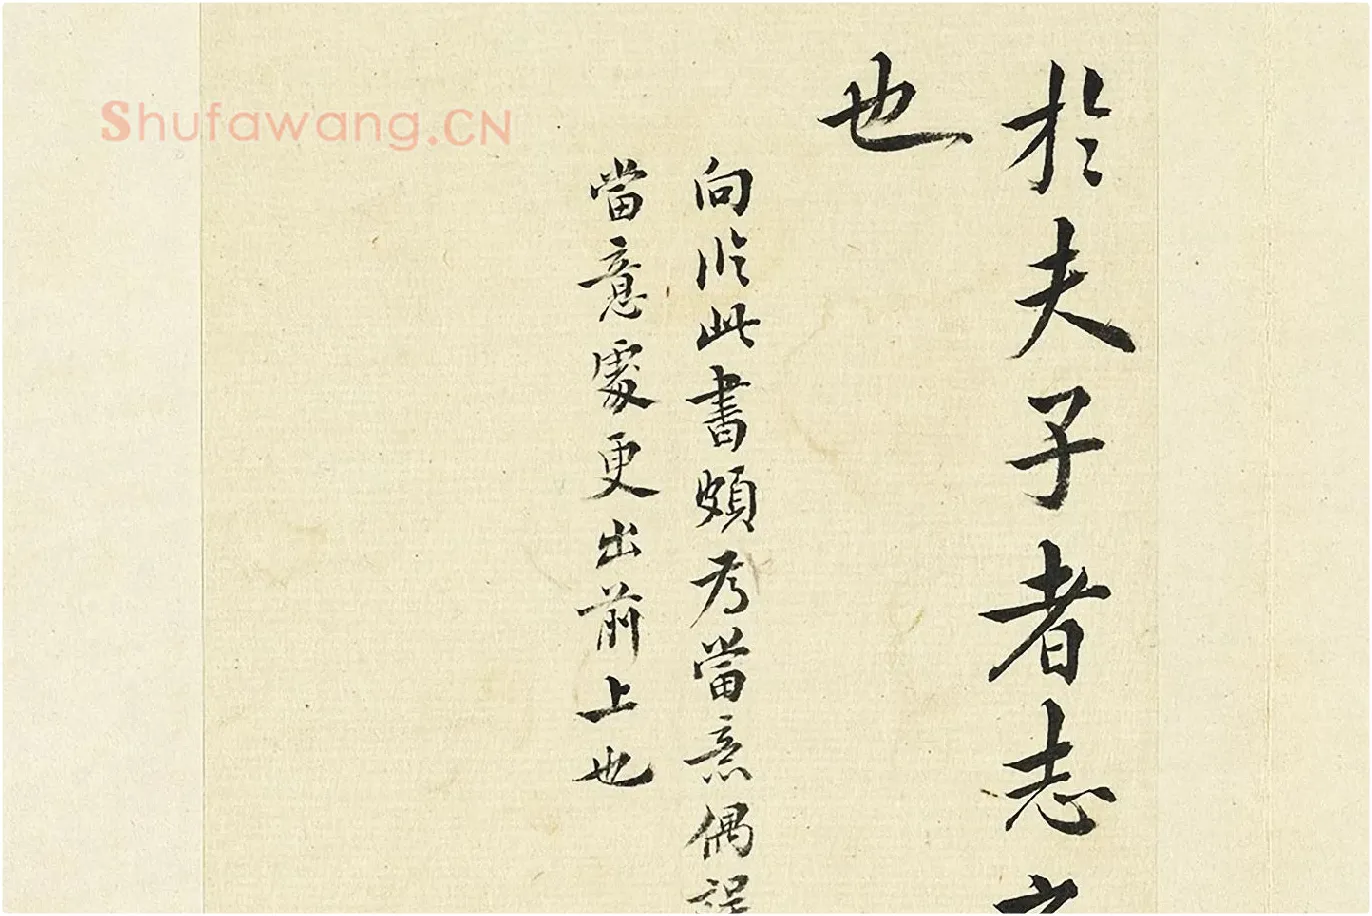 於夫子者志
也
向臨此書頗為當意偶誤
當意處更出前上也
Shufawang.CN